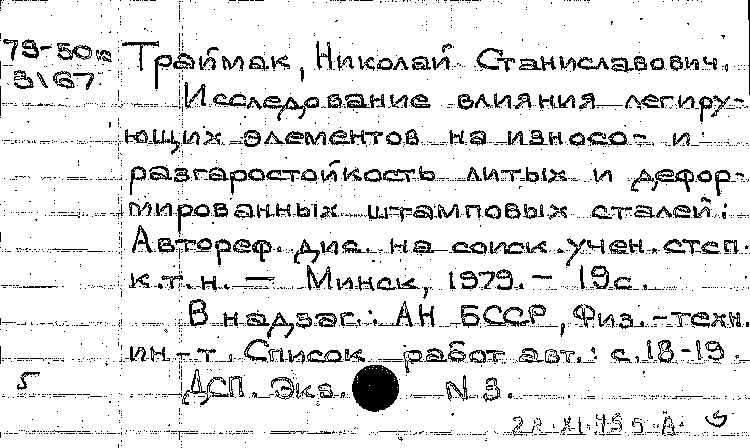 79-50в Траймак, Николай Станиславович.
3167
Исследование влияния легиру-
ющих элементов на износо- и
разгаростойкость литых и дефор-
мированных штамповых сталей:
Автореф. дис. на соиск. учен. степ.
к.т.н. — Минск, 1979. — 19с.
В надзаг.: АН БССР, Физ.-техн.
ин-т. Список работ авт.: с. 18-19.
5 ДСП. Экз. N 3.